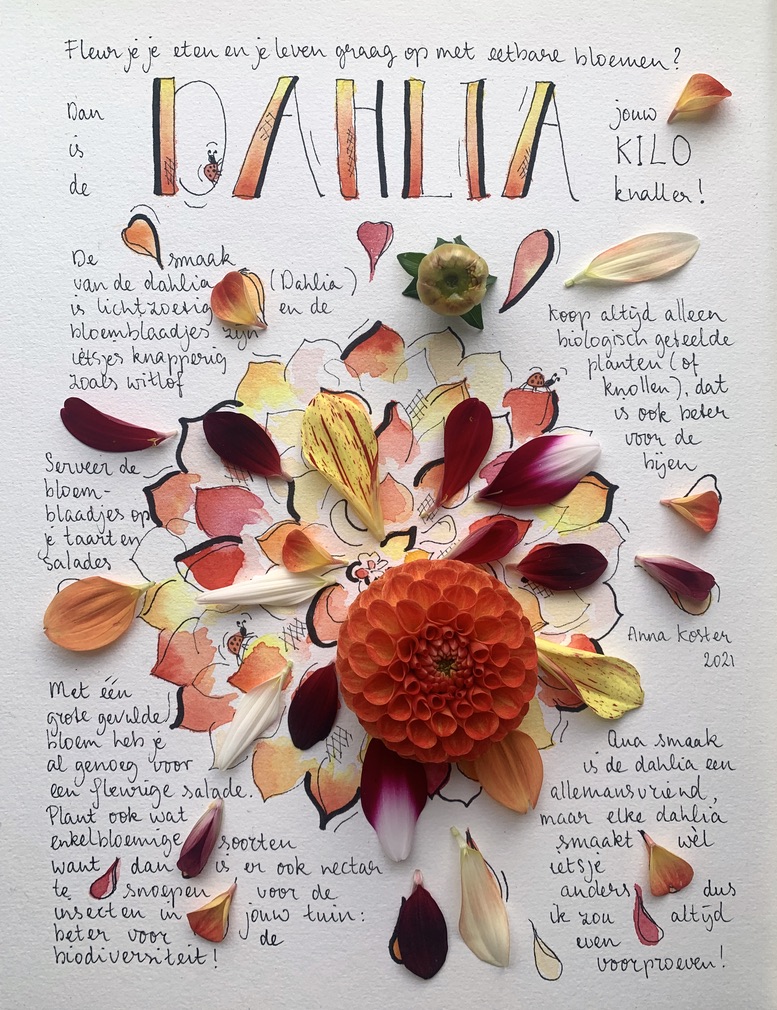 Fleur je je eten en je leven graag op met eetbare bloemen?
Dan
is
de
DAHLIA
jouw
KILO
knaller!
De smaak
van de dahlia (Dahlia)
is lichtzoetig en de
bloemblaadjes zijn
ietsjes knapperig
zoals witlof
koop altijd alleen
biologisch geteelde
planten (of
knollen), dat
is ook beter
voor de
bijen
Serveer de
bloem-
blaadjes op
je taart en
salades
Anna Koster
2021
Met één
grote gevulde
bloem heb je
al genoeg voor
een fleurige salade.
Plant ook wat
enkelbloemige soorten
want dan is er ook nectar
te snoepen voor de
insecten in jouw tuin:
beter voor de
biodiversiteit!
Qua smaak
is de dahlia een
allemansvriend,
maar elke dahlia
smaakt wèl
ietsje
anders dus
ik zou altijd
even
voorproeven!